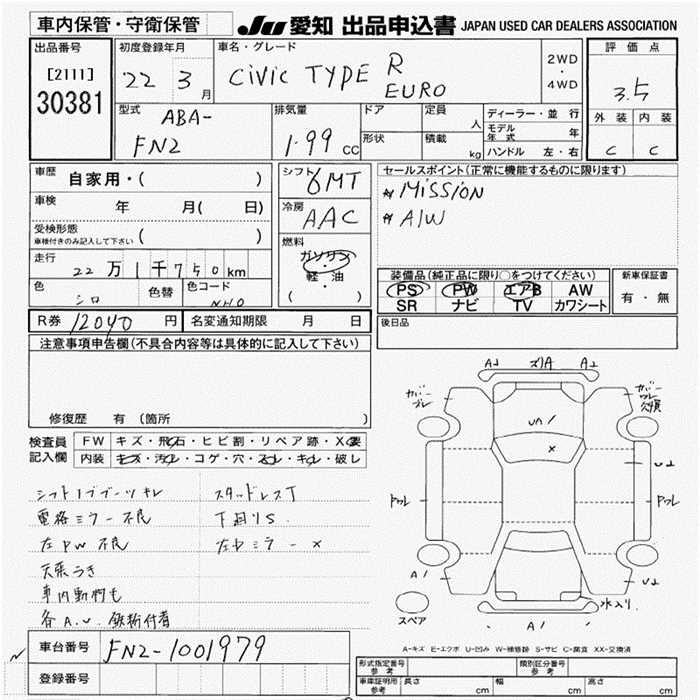 車内保管・守衛保管 JU 愛知 出品申込書 JAPAN USED CAR DEALERS ASSOCIATION
出品番号 [2111] 30381
初度登録年月 22 3月
車名・グレード CiVic TYPE R EURO
2WD・4WD
評価点 3.5
外装 内装
C C
型式 ABA-FN2
排気量 1.99 CC
ドア 形状
定員 人
積載 kg
ディーラー・並行
モデル年式 年
ハンドル 左・右
車歴 自家用・( )
車検 年 月( 日)
受検形態 車検付きのみ記入して下さい ( )
走行 22万1千750km
色 シロ 色替 色コード NHO
シフト 6MT
冷房 AAC
燃料 ガソリン・軽・油 ( )
セールスポイント(正常に機能するものに限ります)
MiSSiON
A/W
装備品(純正品に限り○をつけてください)
PS PW エアB AW
SR ナビ TV カワシート
新車保証書 有・無
R券 12040円 名変通知期限 月 日
後日品
注意事項申告欄(不具合内容等は具体的に記入して下さい)
修復歴 有(箇所 )
検査員記入欄
FW キズ・飛石・ヒビ割・リペア跡・X要
内装 キズ・汚れ・コゲ・穴・スレ・キレ・破レ
シフトノブブーツキレ スタッドレスT
電格ミラー不良 下廻りS
左PW不良 左ドミラーX
天張うき
車内動物も
各A.U.鉄粉付着
A2 ズリA A2
カバーズレ
カバーワレ欠損
UA1
X
U2
トワレ
トワレ
A1
U2
水入り
A1
スペア
A-キズ E-エクボ U-凹み W-補修跡 S-サビ C-腐食 XX-交換済
車台番号 FN2-1001979
登録番号
形式指定番号 参考 類別区分番号 参考
車庫証明用 参考 長さ cm 幅 cm 高さ cm